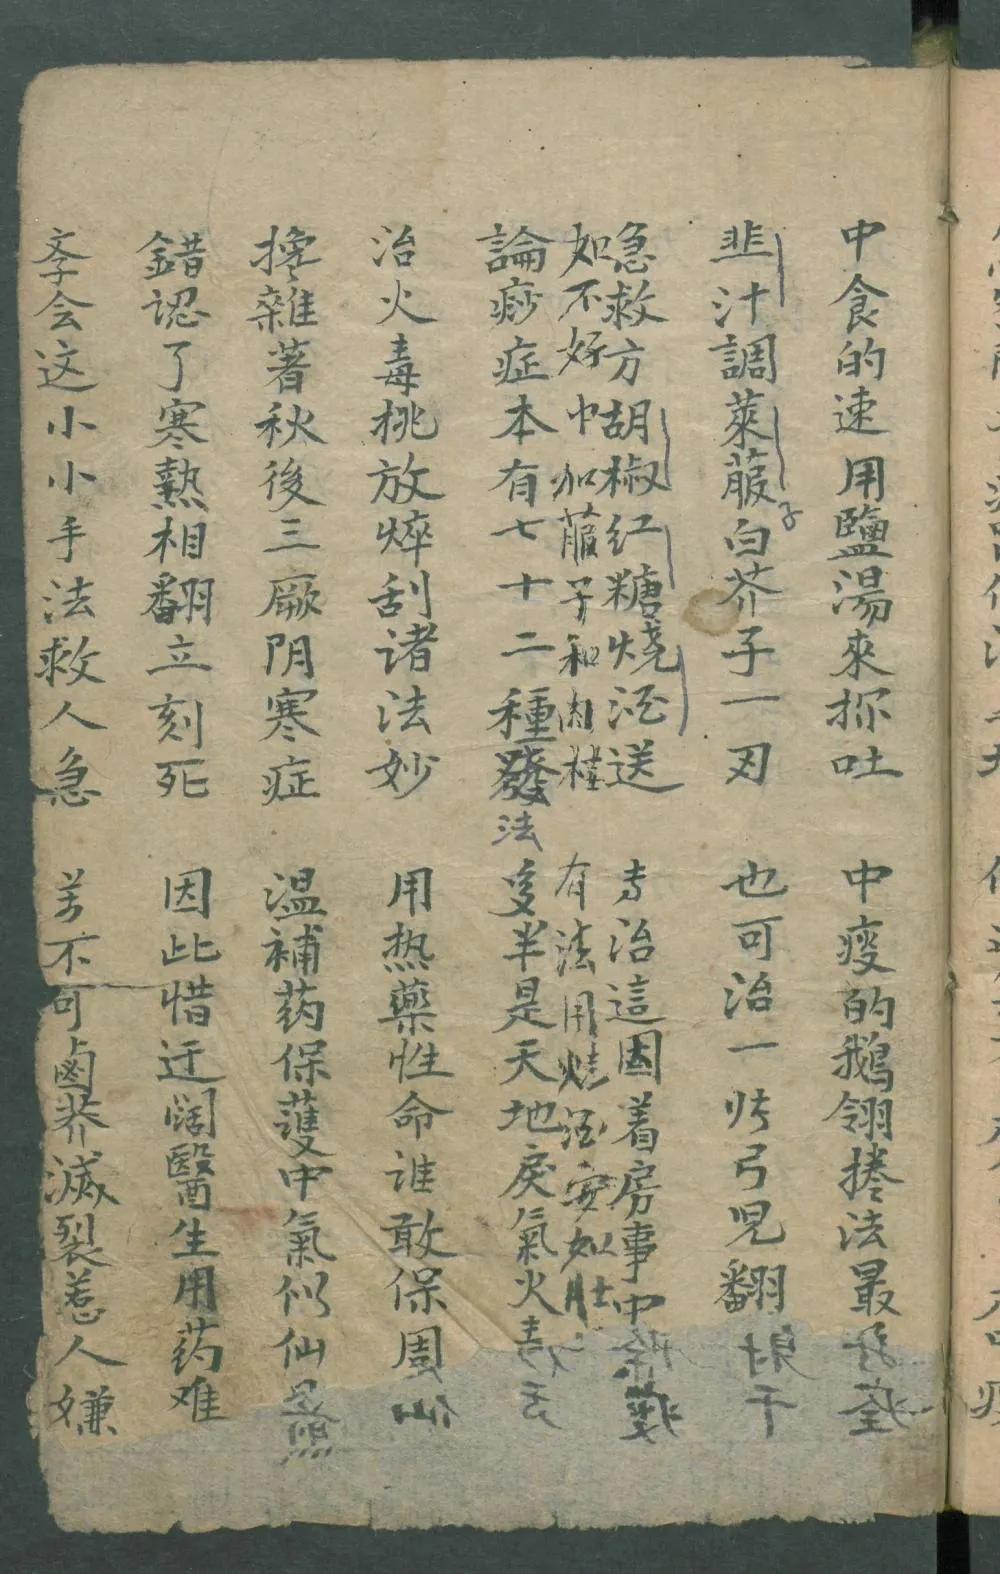 中食的速用鹽湯來探吐　中痧的鵝翎捲法最
韭汁調萊菔子白芥子一刃　也可治一
弓兒翻
急救方胡椒红糖燒酒送　专治這因着房事中
如不好巾加菔子和肉桂　有法用燒酒安如肚
論痧症本有七十二種發法　多半是天地戾氣火毒
治火毒桃放焠刮诸法妙　用热藥性命谁敢保周仙
攙雜著秋後三厥阴寒症　温補药保護中氣似仙
錯認了寒熱相翻立刻死　因此惜迂阔醫生用药难
孝会这小小手法救人急　芳不可鹵莽滅裂惹人嫌